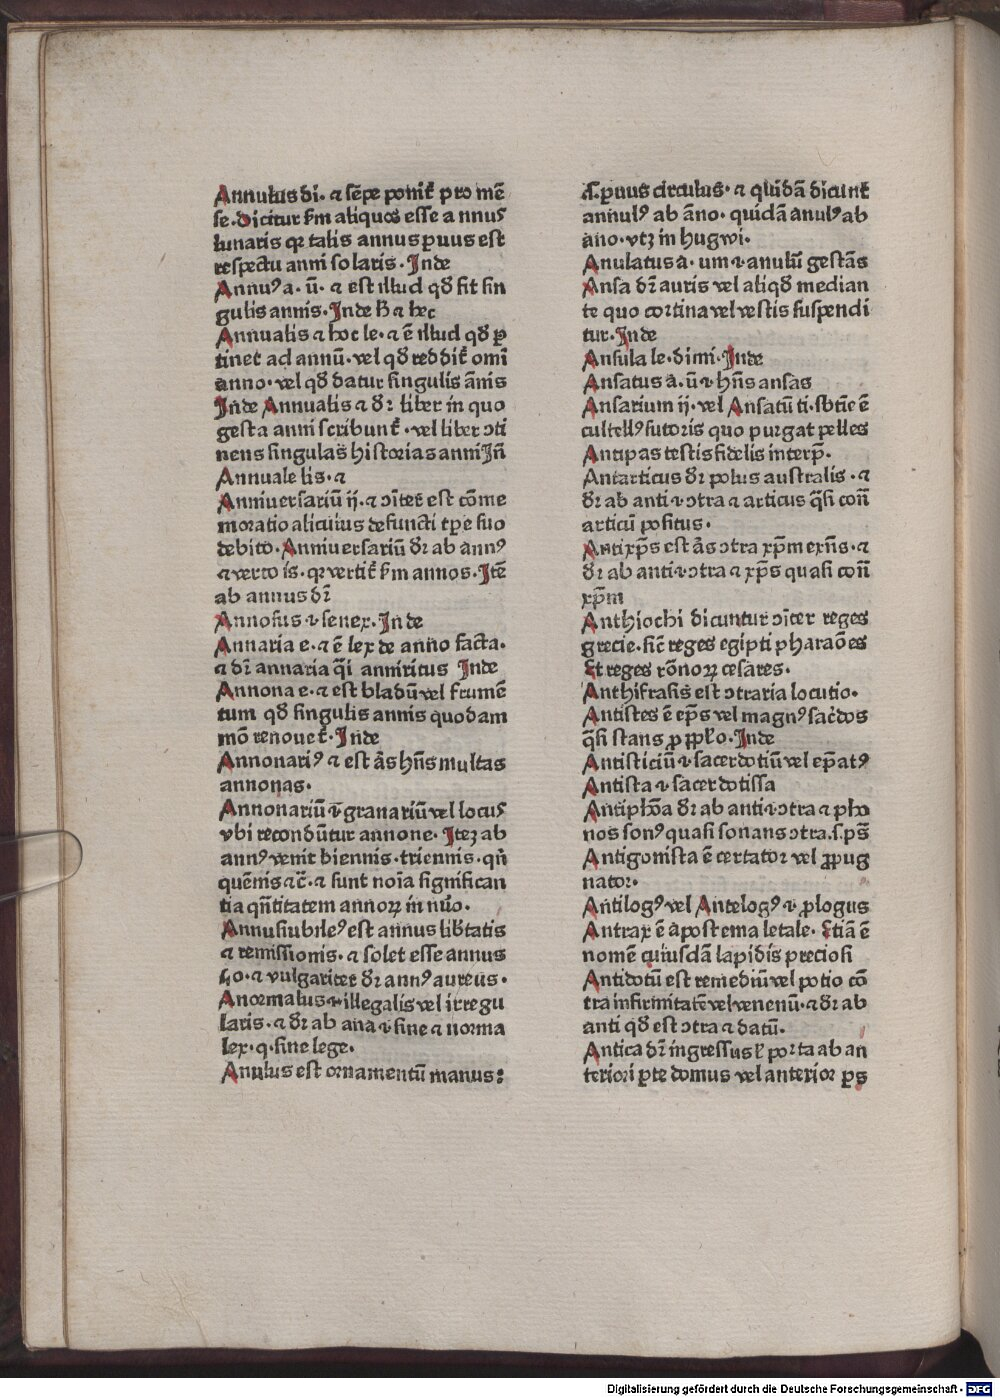 Annulus di· ⁊ sēpe poniť pro mē
se·dicitur ẜm aliquos esse annus
lunaris qꝛ talis annus puus est
respectu anni solaris·Inde
Annuꝰ a· ū· ⁊ est illud qđ fit sin
gulis annis·Inde h̄ ⁊ hec
Annualis ⁊ hoc le·⁊ ē illud qđ ꝑ
tinet ad annū·vel qđ reddiť omī
anno·vel qđ datur singulis ānis
Inde Annualis ⁊ đꝛ liber in quo
gesta anni scribunť·vel liber ↄti
nens singulas historias anni Iñ
Annuale lis·⁊
Anniuersariū ij·⁊ ↄ̄iteꝛ est cōme
moratio alicuius defuncti tꝑe suo
debito·Anniuersariū đꝛ ab annꝰ
⁊ verto is·qꝛ vertiť ẜm annos·Itē
ab annus dꝛ̄
Annosus ⁊ senex·Inde
Annaria e·⁊ ē lex de anno facta·
⁊ dꝛ̄ annaria q̄i anniritus Inde
Annona e·⁊ est bladū vel frumē
tum qđ singulis annis quodam
mō renoueť·Inde
Annonariꝰ ⁊ est āš hñs multas
annonas·
Annonariū ⁊ granariū vel locus
vbi recondūtur annone·Iteꝫ ab
annꝰ venit biennis·triennis·qñ
quēnis ⁊č·⁊ sunt noīa significan
tia qñtitatem annoꝝ in nūo·
Annusiubileꝰ est annus lib̄tatis
⁊ remissionis·⁊ solet esse annus
50·⁊ vulgariter đꝛ annꝰ aureus·
Anormalus ⁊ illegalis vel irregu
laris·⁊ đꝛ ab ana ⁊ sine ⁊ norma
lex·q·sine lege·
Anulus est ornamentū manus:
.s.puus circulus·⁊ quidā dicunť
annulꝰ ab āno·quidā anulꝰ ab
ano·vtꝫ in hugwi·
Anulatus a·um ⁊ anulū gestās
Ansa dꝛ̄ auris vel aliqđ median
te quo cortina vel vestis suspendi
tur·Inde
Ansula le·dimi·Inde
Ansatus a·ū ⁊ hñs ansas
Ansarium ij·vel Ansatū ti·sbtīe ē
cultellꝰ sutoris quo purgat pelles
Antipas testis fidelis interp̄·
Antarticus đꝛ polus australis·⁊
đꝛ ab anti ⁊ ↄtra ⁊ articus q̄si coñ
articū positus·
Antixp̄s est āš ↄtra xp̄m exñs·⁊
đꝛ ab anti ⁊ ↄtra ⁊ xp̄s quasi coñ
xp̄m
Anthiochi dicuntur ↄ̄iter reges
grecie·sic̄ reges egipti pharaōes
Et reges rōnoꝝ cesares·
Anthifrasis est ↄtraria locutio·
Antistes ē ep̄s vel magnꝰ sac̄dos
q̄si stans ꝓ ꝓpl̄o·Inde
Antisticiū ⁊ sacerdotiū vel ep̄atꝰ
Antista ⁊ sacerdotissa
Antiph̄oa đꝛ ab anti ⁊ ↄtra ⁊ pho
nos sonꝰ quasi sonans ↄtra.s.ps̄
Antigonista ē certator vel ꝓpug
nator·
Antilogꝰ vel Antelogꝰ ⁊ ꝓlogus
Antrax ē apostema letale·Etiā ē
nomē cuiusdā lapidis preciosi
Antidotū est remediū vel potio cō
tra infirmitatē vel venenū·⁊ đꝛ ab
anti qđ est ↄtra ⁊ datū·
Antica dꝛ̄ ingressus ł porta ab an
teriori ꝑte domus vel anterior ꝑs
Digitalisierung gefördert durch die Deutsche Forschungsgemeinschaft - DFG